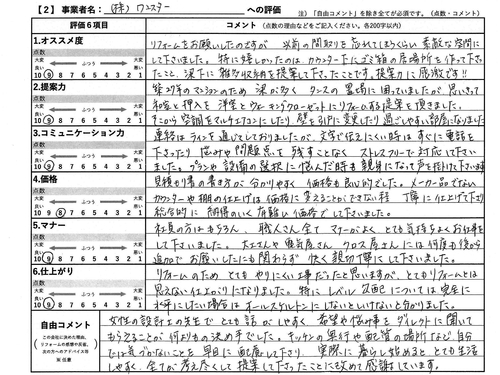 【２】 事業者名： (株) ワンスター への評価
注) 「自由コメント」を除き全てが必須です。（点数・コメント）
評価６項目
コメント （点数の理由などをご記入ください。各200字以内）
1.オススメ度
点数
大変良い ふつう 大変悪い
10 9 8 7 6 5 4 3 2 1
リフォームをお願いしたのですが 以前の間取りを忘れてしまうくらい 素敵な空間に
して下さいました。特に嬉しかったのは、カウンター下にゴミ箱の居場所を作って下さっ
たこと、梁下に雑多収納を提案して下さったことです。提案力に感謝です!!
2.提案力
点数
大変良い ふつう 大変悪い
10 9 8 7 6 5 4 3 2 1
のマンションのため 梁が多く タンスの置場に困っていましたが 思いきって
和室と押入を 洋室とウォーキングクローゼットにリフォームする提案を頂きました。
そこから空調をマルチエアコンにしたり 壁を引戸に変更したり過ごしやすい部屋になりました
3.コミュニケーション力
点数
大変良い ふつう 大変悪い
10 9 8 7 6 5 4 3 2 1
連絡はラインを通じてしておりましたが、文字で伝えにくい時は すぐに電話を
下さったり 悩みや問題点を 残すことなく ストレスフリーで対応して下さい
ました。プランや設備の選択に悩んだ時も親身になって声を掛けて下さいました
4.価格
点数
大変良い ふつう 大変悪い
10 9 8 7 6 5 4 3 2 1
見積り書の書き方が 分かりやすく 価格も良心的でした。メーカー品でない
カウンターや棚の仕上げは 価格に支えることができない程 丁寧に仕上げて下さり
総合的に 納得のいく有難い価格でして下さいました。
5.マナー
点数
大変良い ふつう 大変悪い
10 9 8 7 6 5 4 3 2 1
社員の方はもちろん、職人さん全て マナーがよく とても気持ちよくお仕事を
して下さいました。大工さんや電気屋さん、クロス屋さんには何度も後から
追加でお願いしたにも関わらず 快く親切丁寧にして下さいました。
6.仕上がり
点数
大変良い ふつう 大変悪い
10 9 8 7 6 5 4 3 2 1
リフォームのため とてもやりにくい工事だったと思いますが、とてもリフォームとは
思えない仕上がりになりました。特に レベル については完全に
水平にしたい場合はオールスケルトンにしないといけないと分かりました。
自由コメント
（この会社に決めた理由、リフォームの感想や反省、次の方へのアドバイス等
※ 任意
女性の設計士の先生で とても話がしやすく 希望や悩み事を ダイレクトに聞いて
もらうことが 何よりもの決め手でした。キッチンの奥行や配管の場所など、自分
では気づかないことを 早目に 配慮して下さり 実際に暮らし始めると とても生活
しやすく、全てが考え尽くして 提案して下さったことに改めて感謝しています。